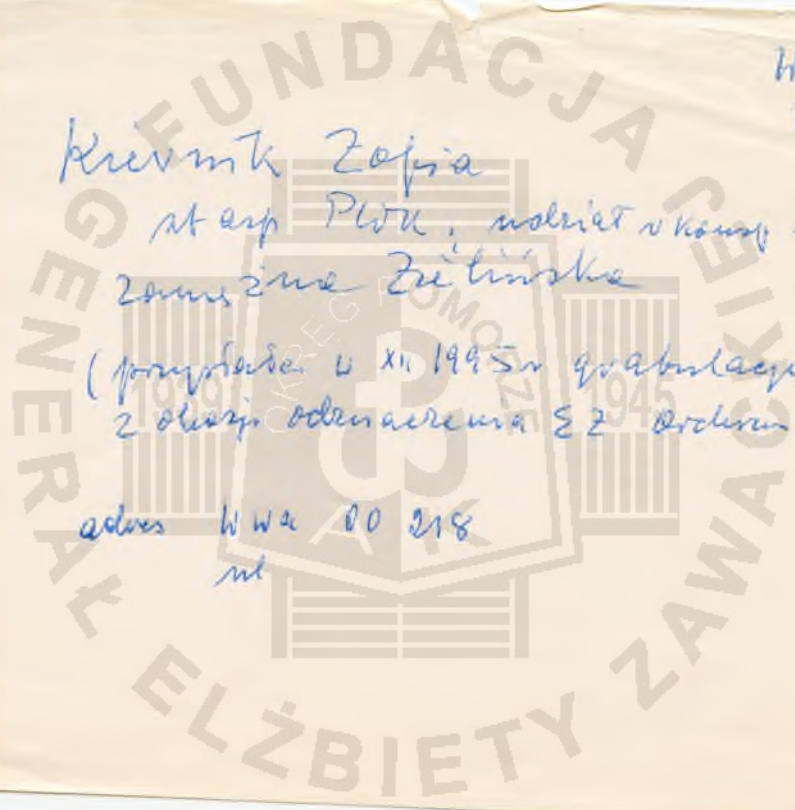 W
Zofia
st asp PWK, udział w konsp
zamężna Zielińska
(przysłała w XII 1995 r gratulacje
z okazji odznaczenia EZ Orderem
adres Wwa 00 218
ul
FUNDACJA GENERAŁ ELŻBIETY ZAWACKIEJ
OKRĘG POMORZE
1939 1945
AK